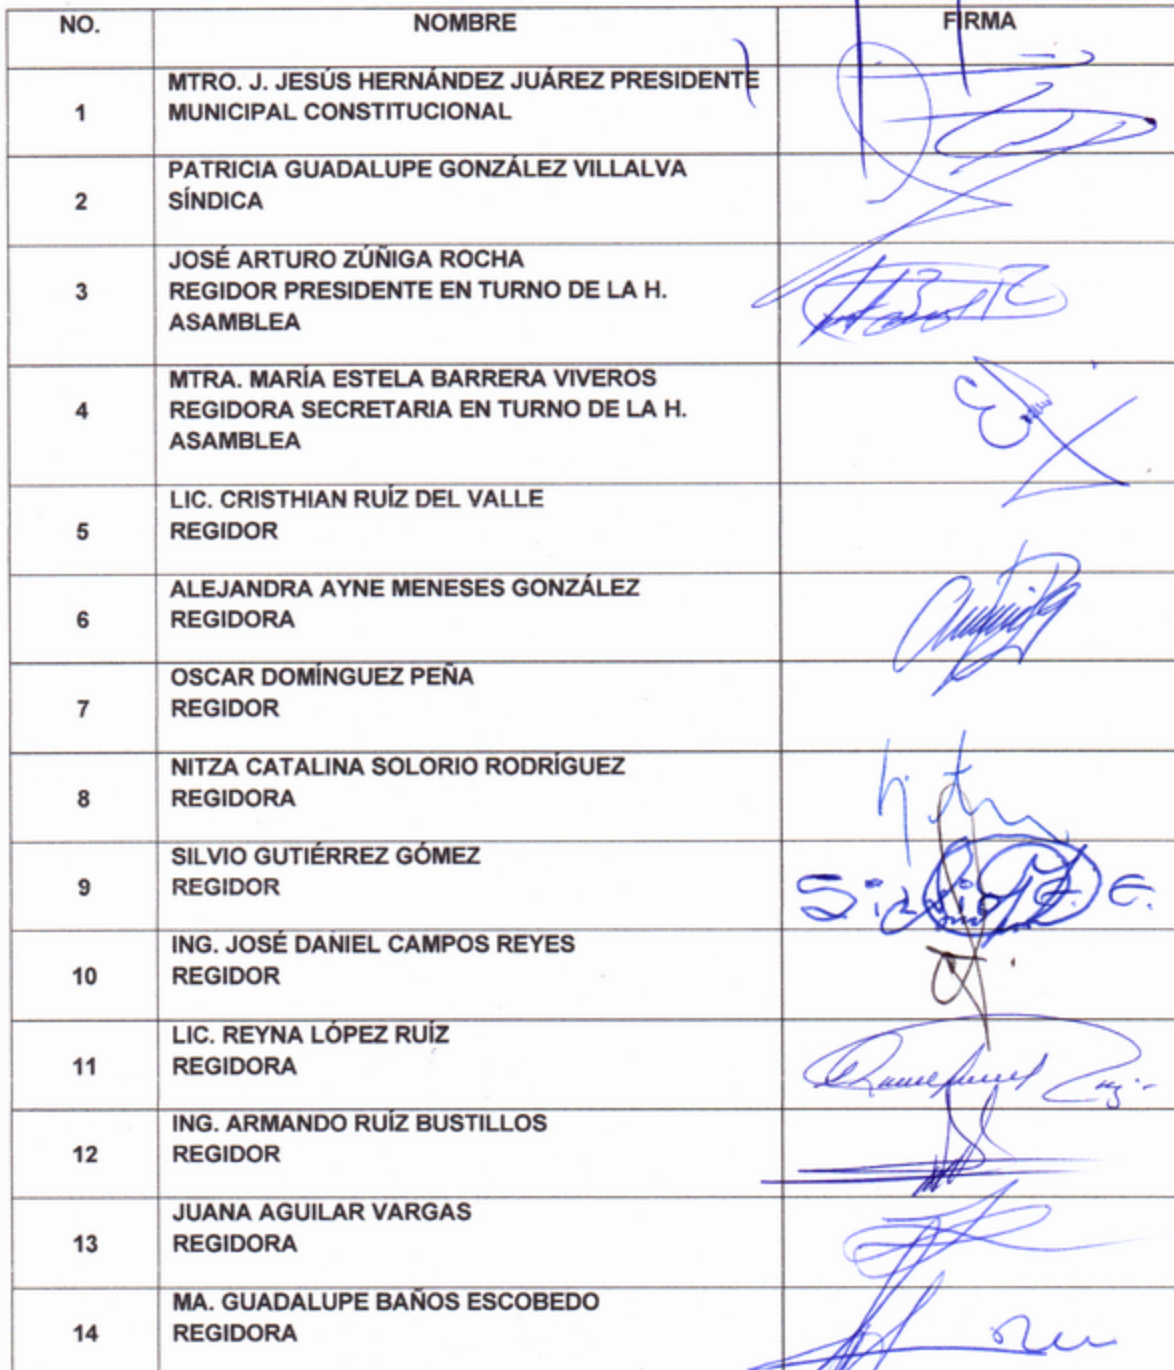 NO. NOMBRE FIRMA
MTRO. J. JESÚS HERNÁNDEZ JUÁREZ PRESIDENTE
1 MUNICIPAL CONSTITUCIONAL
PATRICIA GUADALUPE GONZÁLEZ VILLALVA
2 SÍNDICA
JOSÉ ARTURO ZÚÑIGA ROCHA
3 REGIDOR PRESIDENTE EN TURNO DE LA H.
ASAMBLEA
MTRA. MARÍA ESTELA BARRERA VIVEROS
4 REGIDORA SECRETARIA EN TURNO DE LA H.
ASAMBLEA
LIC. CRISTHIAN RUÍZ DEL VALLE
5 REGIDOR
ALEJANDRA AYNE MENESES GONZÁLEZ
6 REGIDORA
OSCAR DOMÍNGUEZ PEÑA
7 REGIDOR
NITZA CATALINA SOLORIO RODRÍGUEZ
8 REGIDORA
SILVIO GUTIÉRREZ GÓMEZ
9 REGIDOR
ING. JOSÉ DANIEL CAMPOS REYES
10 REGIDOR
LIC. REYNA LÓPEZ RUÍZ
11 REGIDORA
ING. ARMANDO RUÍZ BUSTILLOS
12 REGIDOR
JUANA AGUILAR VARGAS
13 REGIDORA
MA. GUADALUPE BAÑOS ESCOBEDO
14 REGIDORA